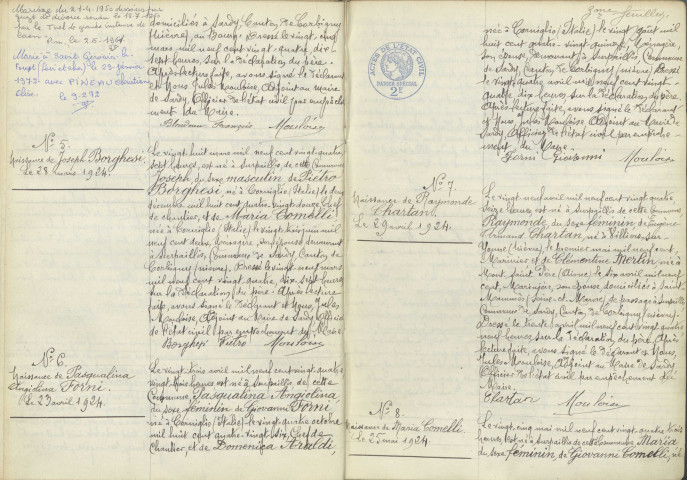 Mariage du 21.4.1960 dissous par
domiciliés à Sardy, Canton de Corbigny
(Nièvre), au Bourg. Dressé le vingt-cinq
mars mil neuf cent vingt-quatre, dix
sept heures, sur la déclaration du père.
Après lecture faite, avons signé le déclarant
et Nous Jules Mouloise, Adjoint au maire
de Sardy, Officier de l'état civil par empêche
ment du Maire.
François Mouloise
Marié à Saint Germain
le 29 janvier
1972 avec PINEAU
N° 5.
Naissance de Joseph Borghesi.
Le 28 mars 1924.
Le vingt huit mars mil neuf cent vingt quatre,
sept heures, est né à Surpaillis de cette Commune
Joseph, du sexe masculin de Pietro
Borghesi né à Corniglio (Italie) le
décembre mil huit cent quatre-vingt douze, chef
de chantier, et de Maria Comelli
née à Corniglio (Italie) le vingt huit juin mil
neuf cent deux, ménagère, son épouse demeurant
à Surpaillis, Commune de Sardy, Canton de
Corbigny (Nièvre). Dressé le vingt neuf mars
mil neuf cent vingt quatre, dix sept heures
sur la déclaration du père. Après lecture
faite, avons signé le déclarant et Nous, Jules
Mouloise, Adjoint au Maire de Sardy, Officier
de l'état civil par empêchement du Maire
Borghesi Pietro Mouloise
N° 6.
Naissance de Pasqualina
Angiolina Forni.
Le 23 avril 1924.
Le vingt trois avril mil neuf cent vingt quatre
vingt trois heures est née à Surpaillis de cette
Commune, Pasqualina Angiolina,
du sexe féminin de Giovanni Forni
né à Corniglio (Italie) le vingt quatre octobre
mil huit cent quatre vingt dix, Chef de
Chantier, et de Domenica Araldi,
3me feuillet
née à Corniglio (Italie) le vingt août mil
huit cent quatre-vingt quinze, Ménagère,
son épouse, demeurant à Surpaillis Commune
de Sardy, Canton de Corbigny (Nièvre). Dressé
le vingt quatre avril mil neuf cent vingt
quatre, dix heures, sur la déclaration du père.
Après lecture faite, avons signé le déclarant et
Nous Jules Mouloise, Adjoint au Maire de
Sardy, Officier de l'état civil par empêche
ment du Maire.
Forni Giovanni Mouloise
ACTES DE L'ÉTAT CIVIL
2F
N° 7.
Naissance de Raymonde
Chartan.
Le 29 avril 1924.
Le vingt neuf avril mil neuf cent vingt quatre,
seize heures, est née à Surpaillis de cette Commune
Raymonde, du sexe féminin de Eugène
Armand Chartan, né à Villiers-sur-
Yonne (Nièvre), le premier mai mil neuf cent,
Marinier et de Clémentine Merlin née à
Mont-Saint-Père (Aisne) le six avril mil neuf
cent, Marinière, son épouse domiciliés à Saint
Mammès (Seine-et-Marne) de passage à Surpaillis
Commune de Sardy, Canton de Corbigny (Nièvre)
Dressé le trente avril mil neuf cent vingt quatre
neuf heures sur la déclaration du père. Après
lecture faite, avons signé le déclarant et Nous,
Jules Mouloise, Adjoint au Maire de Sardy,
Officier de l'état civil par empêchement du
Maire.
Chartan Mouloise
N° 8.
Naissance de Maria Comelli.
Le 25 mai 1924.
Le vingt cinq mai mil neuf cent vingt quatre, trois
heures, est née à Surpaillis de cette Commune Maria
du sexe féminin, de Giovanni Comelli, né